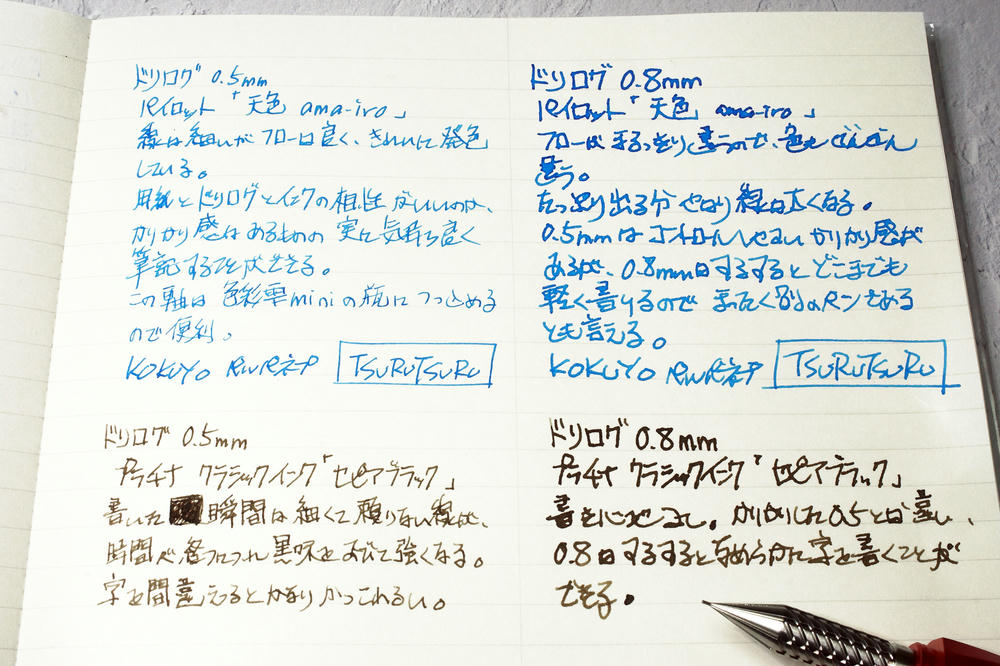 ドリログ 0.5mm
パイロット「天色 ama-iro」
線は細いがフローは良く、きれいに発色
している。
用紙とドリログとインクの相性がいいのか、
かりかり感はあるものの実に気持ち良く
筆記することができる。
この軸は色彩雫miniの瓶につっこめる
ので便利。
KOKUYO PERPANEP TSURUTSURU
ドリログ 0.8mm
パイロット「天色 ama-iro」
フローがまるっきり違うので、色もぜんぜん
違う。
たっぷり出る分やはり線は太くなる。
0.5mmはコントロールしやすいかりかり感が
あるが、0.8mmはするするとどこまでも
軽く書けるのでまったく別のペンである
とも言える。
KOKUYO TSURUTSURU
ドリログ 0.5mm
プラチナ クラシックインク「セピアブラック」
書いた瞬間は細くて頼りない線が、
時間が経つにつれ黒味をおびて強くなる。
字を間違えるとかなりかっこわるい。
ドリログ 0.8mm
プラチナ クラシックインク「セピアブラック」
書き心地よし。かりかりした0.5とは違い、
0.8はするするとなめらかに字を書くことが
できる。